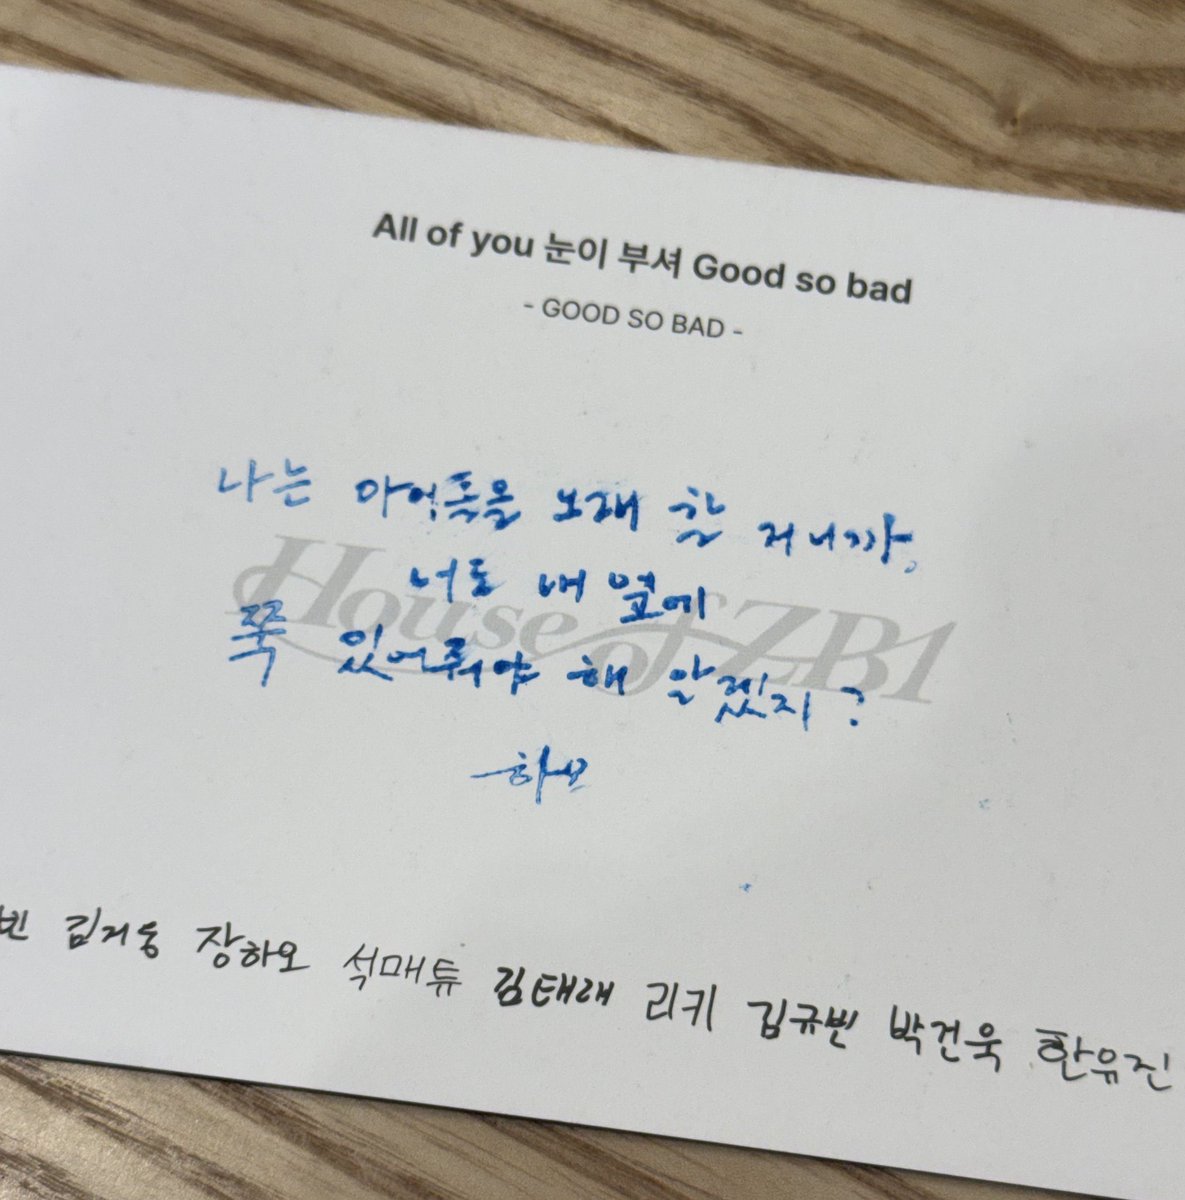 All of you 눈이 부셔 Good so bad
- GOOD SO BAD -
나는 아이돌을 오래 할 거니까,
너도 내 옆에
쭉 있어줘야 해 알겠지?
하오
House of ZB1
빈 김지웅 장하오 석매튜 김태래 리키 김규빈 박건욱 한유진